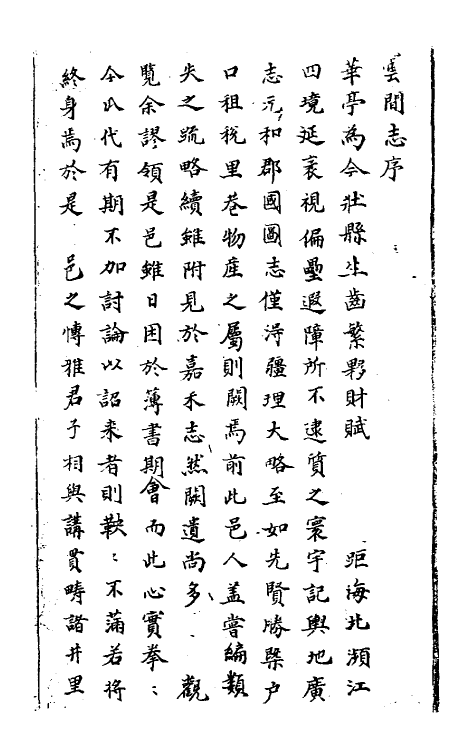 雲間志序
華亭為今壯縣生齒繁夥財賦 距海北瀕江
四境延袤視偏壘遐障所不逮質之寰宇記輿地廣
志元和郡國圖志僅淂疆理大略至如先賢勝槩户
口租稅里巷物產之屬則闕焉前此邑人盖嘗編類
失之疏略續雖附見於嘉禾志然闕遺尚多 觀
覽余謬領是邑雖日困於簿書期會而此心實拳〻
今瓜代有期不加討論以詔来者則歉〻不蒲若将
終身焉於是 邑之愽雅君子相與講貫疇諸井里